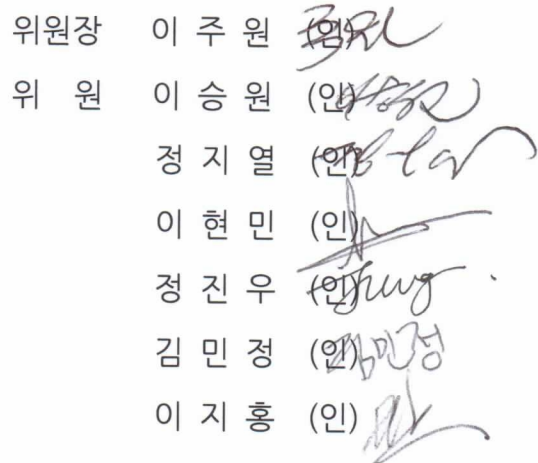 위원장 이 주 원 (인)
위 원 이 승 원 (인)
정 지 열 (인)
이 현 민 (인)
정 진 우 (인) Jung
김 민 정 (인) 김민정
이 지 홍 (인)